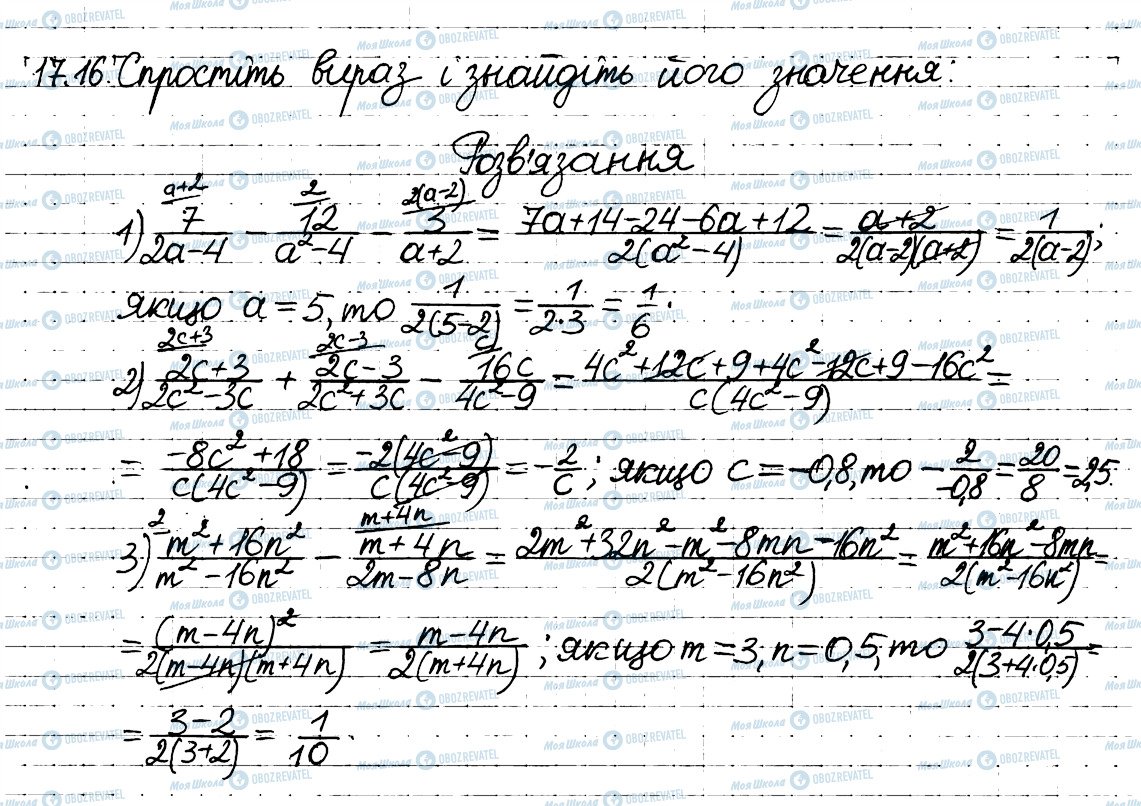 17.16. Спростіть вираз і знайдіть його значення:
Розв'язання
1) 7/(2a-4) [a+2] - 12/(a²-4) [2] - 3/(a+2) [2(a-2)] = (7a+14-24-6a+12)/(2(a²-4)) = (a+2)/(2(a-2)(a+2)) = 1/(2(a-2));
якщо a = 5, то 1/(2(5-2)) = 1/(2·3) = 1/6.
2) (2c+3)/(2c²-3c) [2c+3] + (2c-3)/(2c²+3c) [2c-3] - 16c/(4c²-9) [c] = (4c²+12c+9+4c²-12c+9-16c²)/(c(4c²-9)) =
= (-8c²+18)/(c(4c²-9)) = (-2(4c²-9))/(c(4c²-9)) = -2/c; якщо c = -0,8, то -2/(-0,8) = 20/8 = 2,5.
3) (m²+16n²)/(m²-16n²) [2] - (m+4n)/(2m-8n) [m+4n] = (2m²+32n²-m²-8mn-16n²)/(2(m²-16n²)) = (m²+16n²-8mn)/(2(m²-16n²)) =
= (m-4n)²/(2(m-4n)(m+4n)) = (m-4n)/(2(m+4n)); якщо m = 3, n = 0,5, то (3-4·0,5)/(2(3+4·0,5)) =
= (3-2)/(2(3+2)) = 1/10.
Моя Школа OBOZREVATEL